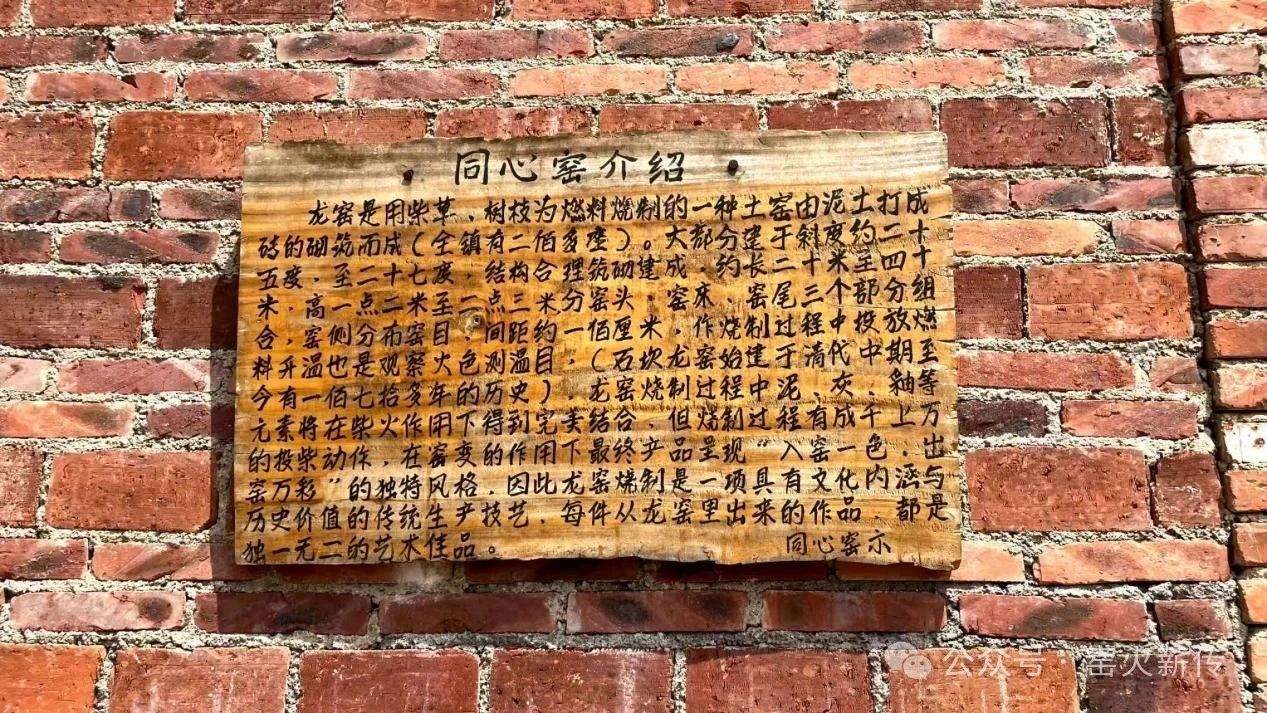 同心窑介绍
龙窑是用柴草、树枝为燃料烧制的一种土窑由泥土打成
砖的砌筑而成(全镇有二佰多座)。大部分建于斜度约二十
五度,至二十七度,结构合理筑砌建成,约长二十米至四十
米,高一点二米至一点三米分窑头,窑床,窑尾三个部分组
合,窑侧分布窑目,间距约一佰厘米,作烧制过程中投放燃
料升温也是观察火色测温目,(石坎龙窑始建于清代中期至
今有一佰七拾多年的历史),龙窑烧制过程中泥、灰、釉等
元素将在柴火作用下得到完美结合,但烧制过程有成千上万
的投柴动作,在窑变的作用下最终产品呈现“入窑一色,出
窑万彩”的独特风格,因此龙窑烧制是一项具有文化内涵与
历史价值的传统生产技艺,每件从龙窑里出来的作品,都是
独一无二的艺术佳品。
同心窑示
公众号·窑火新传